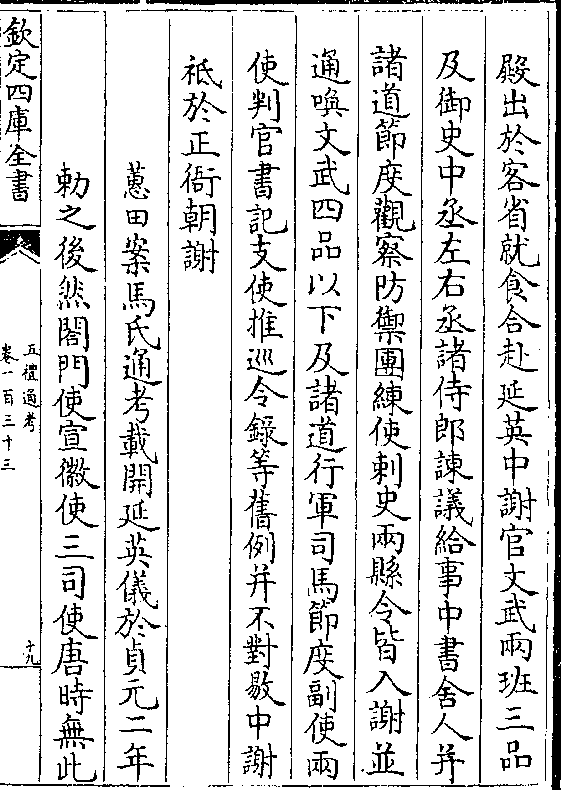 殿出於客省就食合赴延英中謝官文武兩班三品
及御史中丞左右丞諸侍郎諫議給事中書舍人并
諸道節度觀察防禦團練使刺史兩縣令皆入謝並
通喚文武四品以下及諸道行軍司馬節度副使兩
使判官書記支使推巡令錄等舊例并不對敭中謝
祗於正衙朝謝
蕙田案馬氏通考載開延英儀於貞元二年
勅之後然閤門使宣徽使三司使唐時無此
欽定四庫全書
五禮通考
卷一百三十三
十九